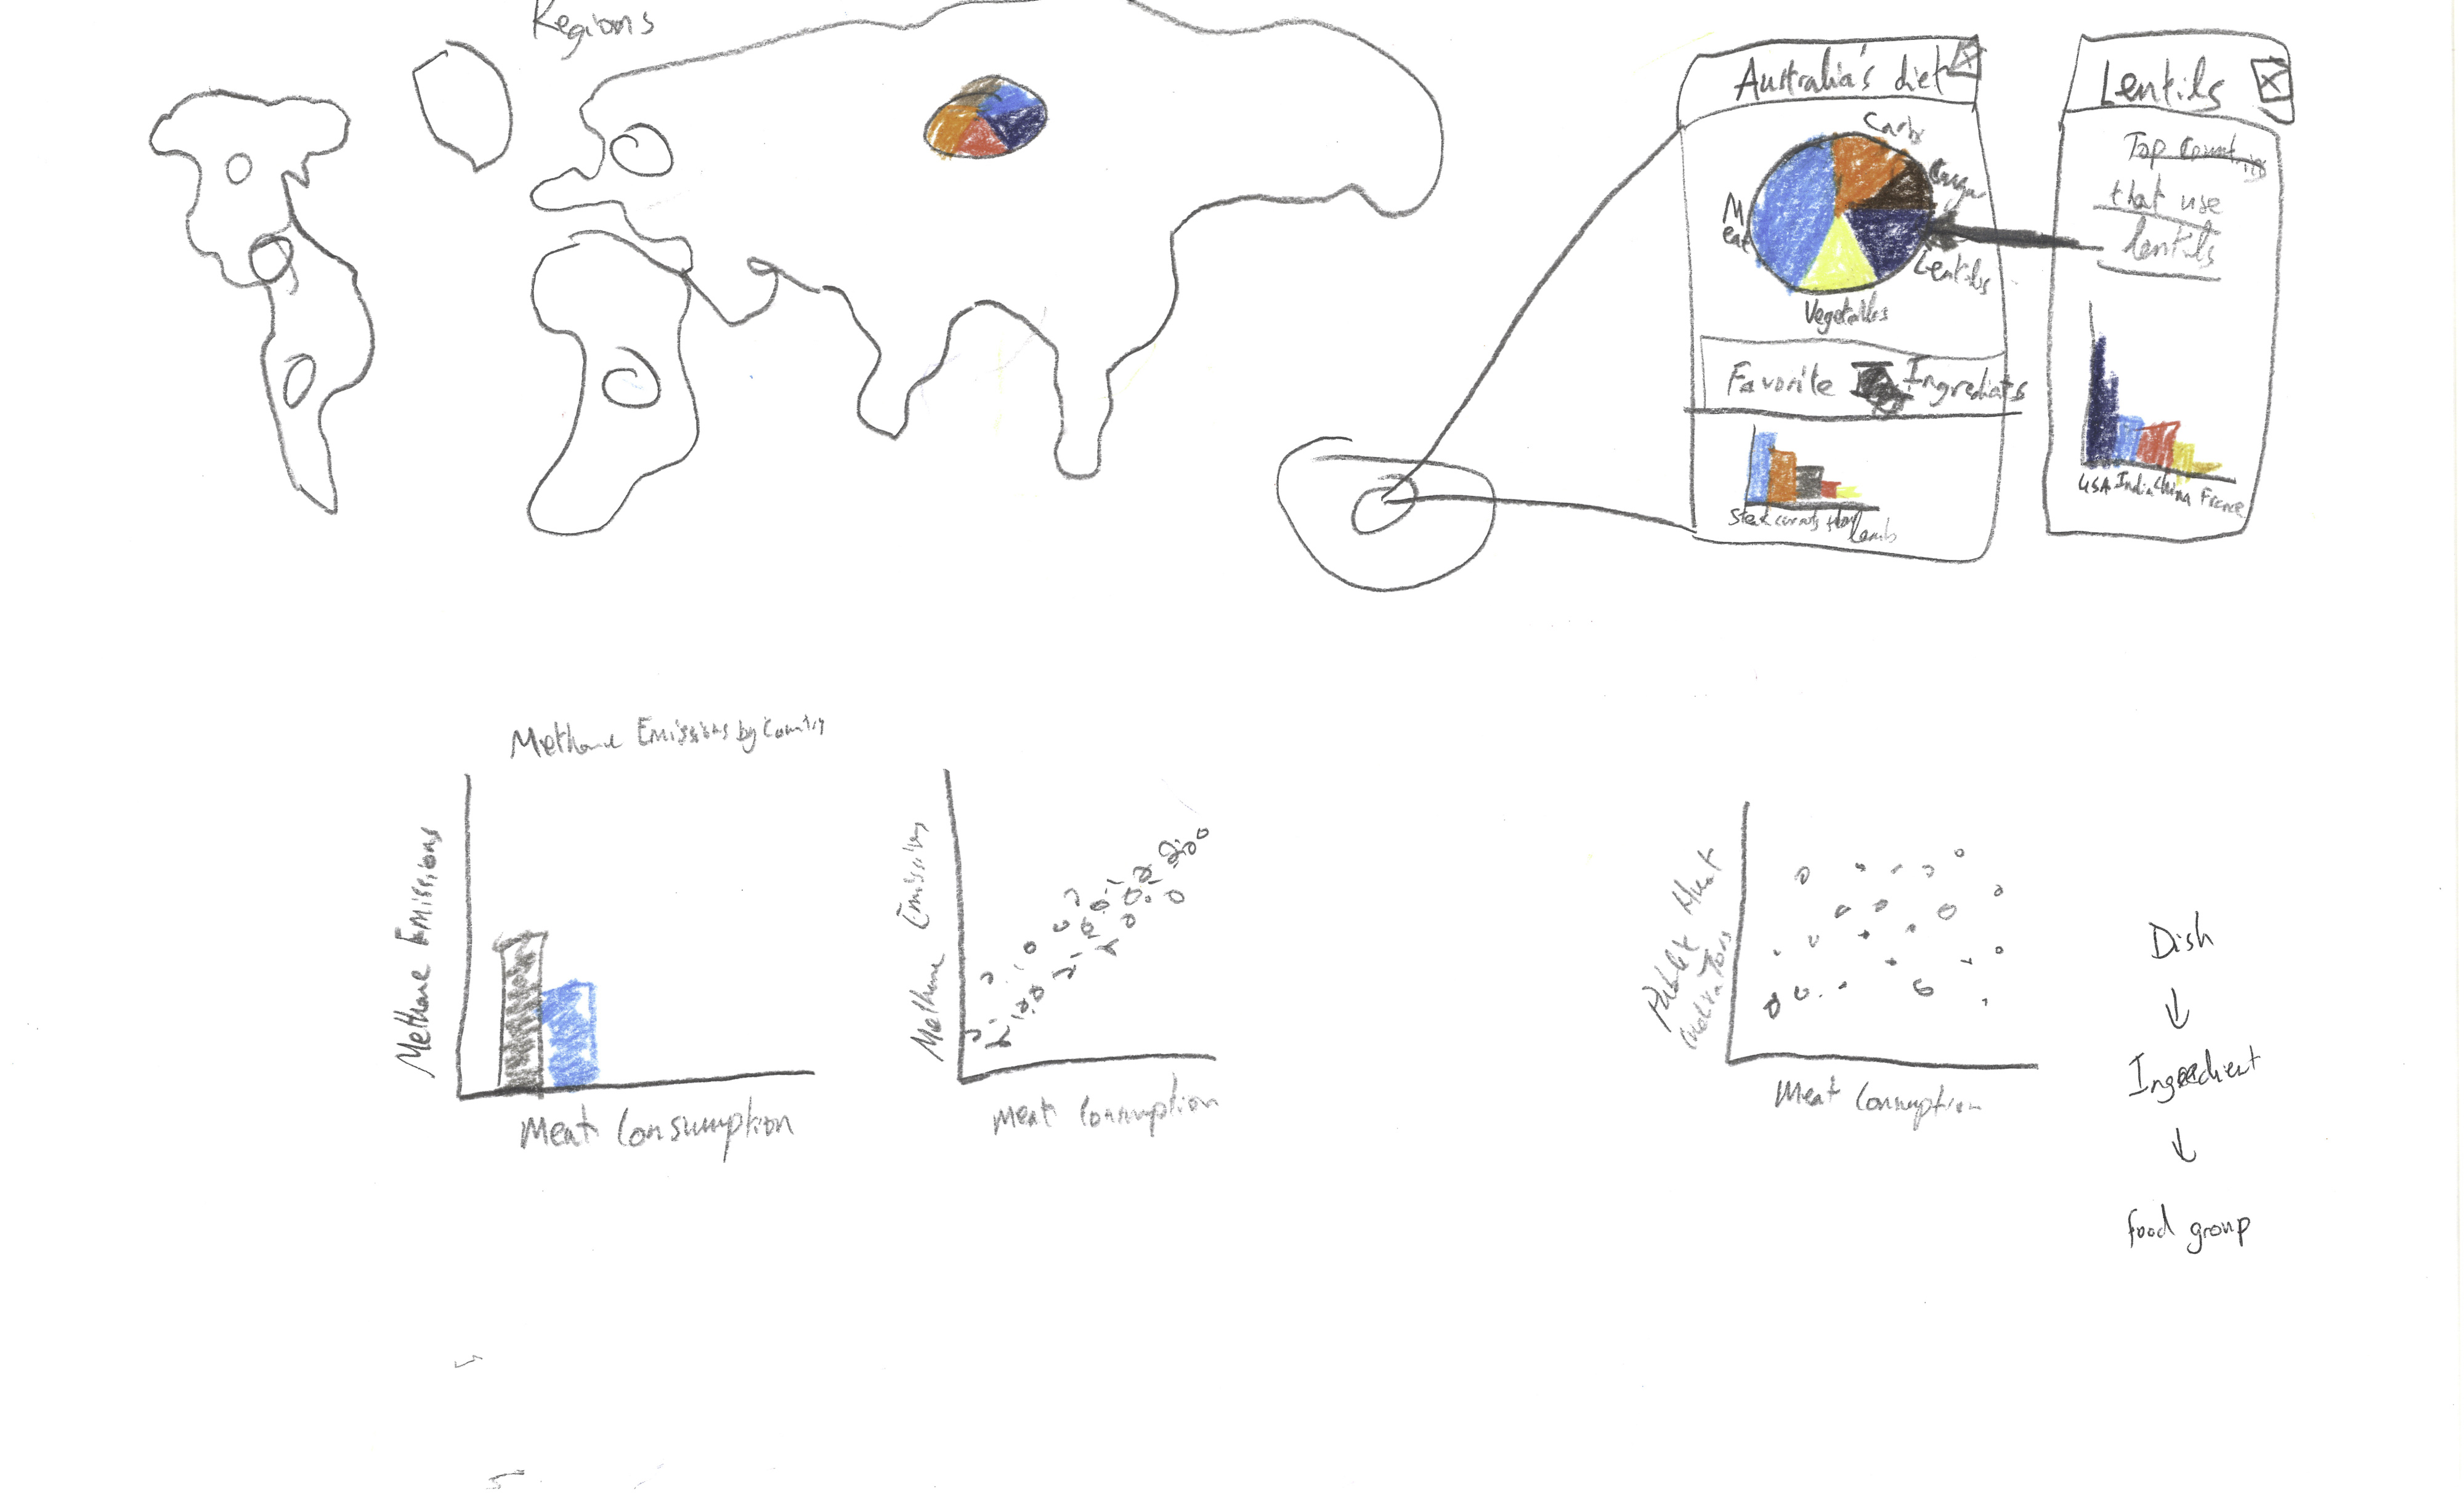 Regions
Australia's diet
Carbs
Meat
Lentils
Vegetables
Favorite Ingredients
Steak carrots
lamb
Lentils
Top Countries
that use
lentils
USA India China France
Methane Emissions by Country
Methane Emissions
Meat Consumption
Methane Emissions
Meat Consumption
Meat
Meat Consumption
Dish
↓
Ingredient
↓
food group